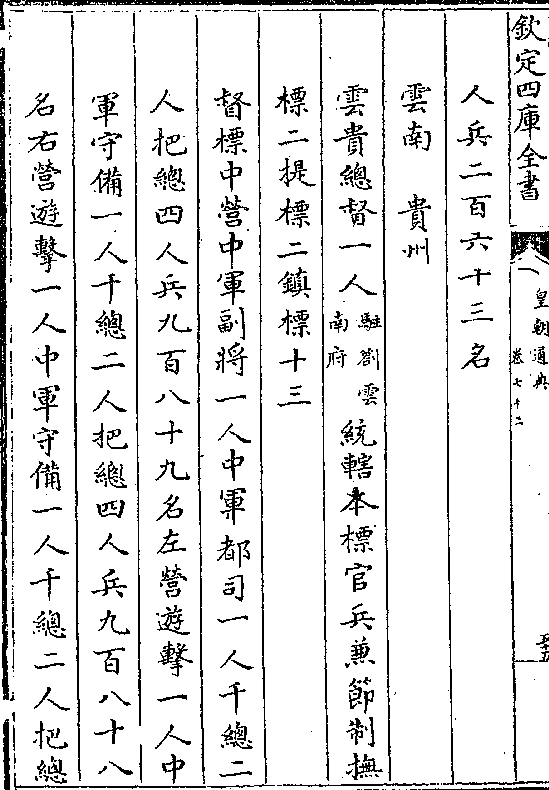 欽定四庫全書
皇朝通典
卷七十二
人兵二百六十三名
雲南 貴州
雲貴總督一人駐劄雲南府統轄本標官兵兼節制撫
標二提標二鎮標十三
督標中營中軍副將一人中軍都司一人千總二
人把總四人兵九百八十九名左營遊擊一人中
軍守備一人千總二人把總四人兵九百八十八
名右營遊擊一人中軍守備一人千總二人把總